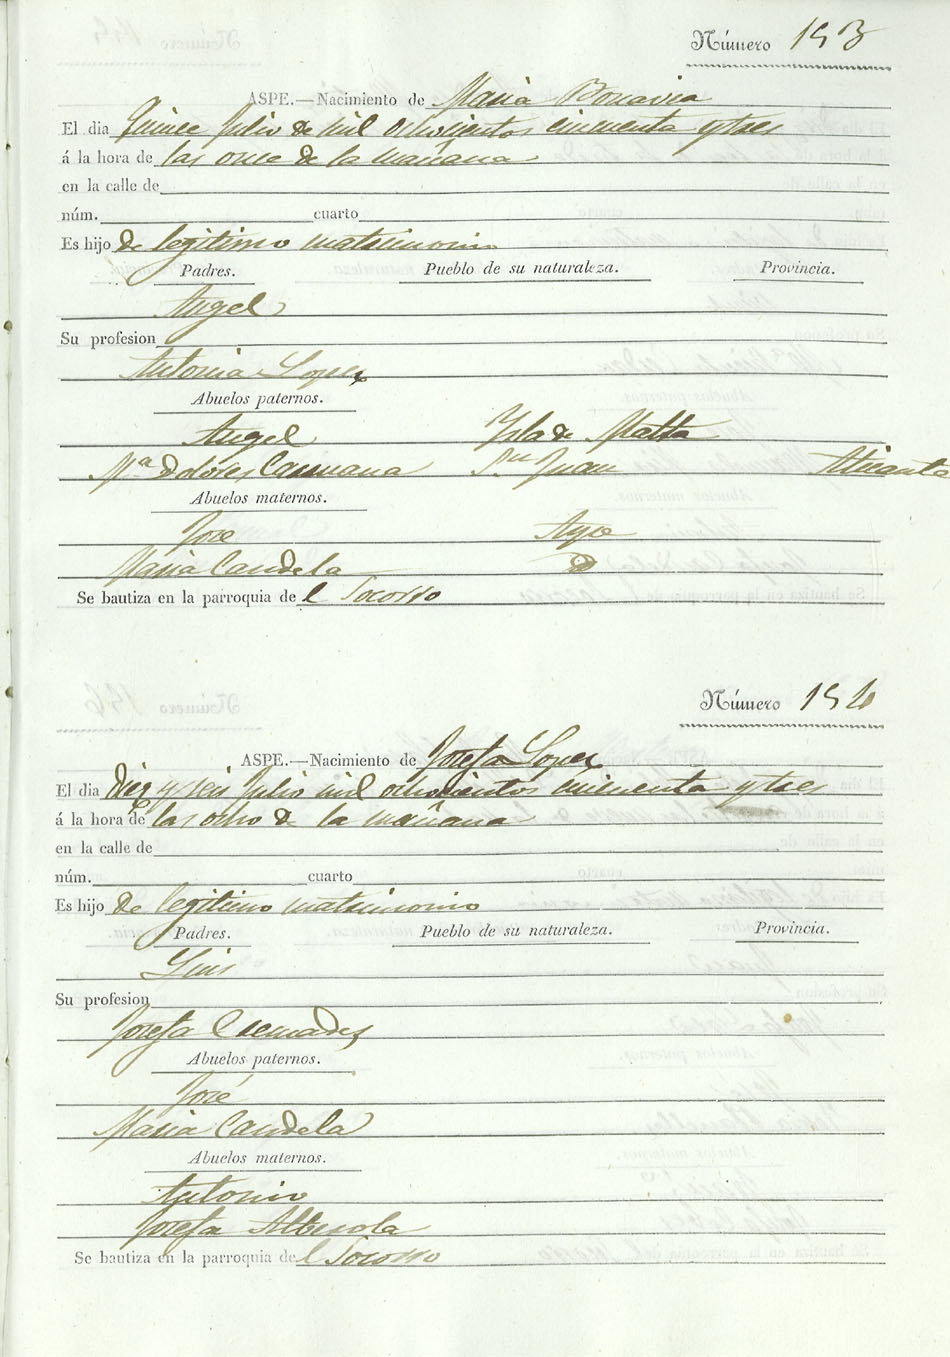 Número 153
ASPE.—Nacimiento de Maria Bonavia
El dia Quince Julio de mil ochocientos cincuenta y tres
á la hora de las once de la mañana
en la calle de
núm. cuarto
Es hijo de legitimo matrimonio
Padres. Pueblo de su naturaleza. Provincia.
Angel
Su profesion
Antonia Lopez
Abuelos paternos.
Angel Ysla de Malta
Mª Dolores Caruana Sn Juan Alicante
Abuelos maternos.
José Aspe
Maria Candela D
Se bautiza en la parroquia de l Socorro
Número 154
ASPE.—Nacimiento de Josefa Lopez
El dia Diez y seis Julio mil ochocientos cincuenta y tres
á la hora de las ocho de la mañana
en la calle de
núm. cuarto
Es hijo de legitimo matrimonio
Padres. Pueblo de su naturaleza. Provincia.
Luis
Su profesion
Josefa
Abuelos paternos.
José
Maria Candela
Abuelos maternos.
Antonio
Josefa Alberola
Se bautiza en la parroquia de l Socorro